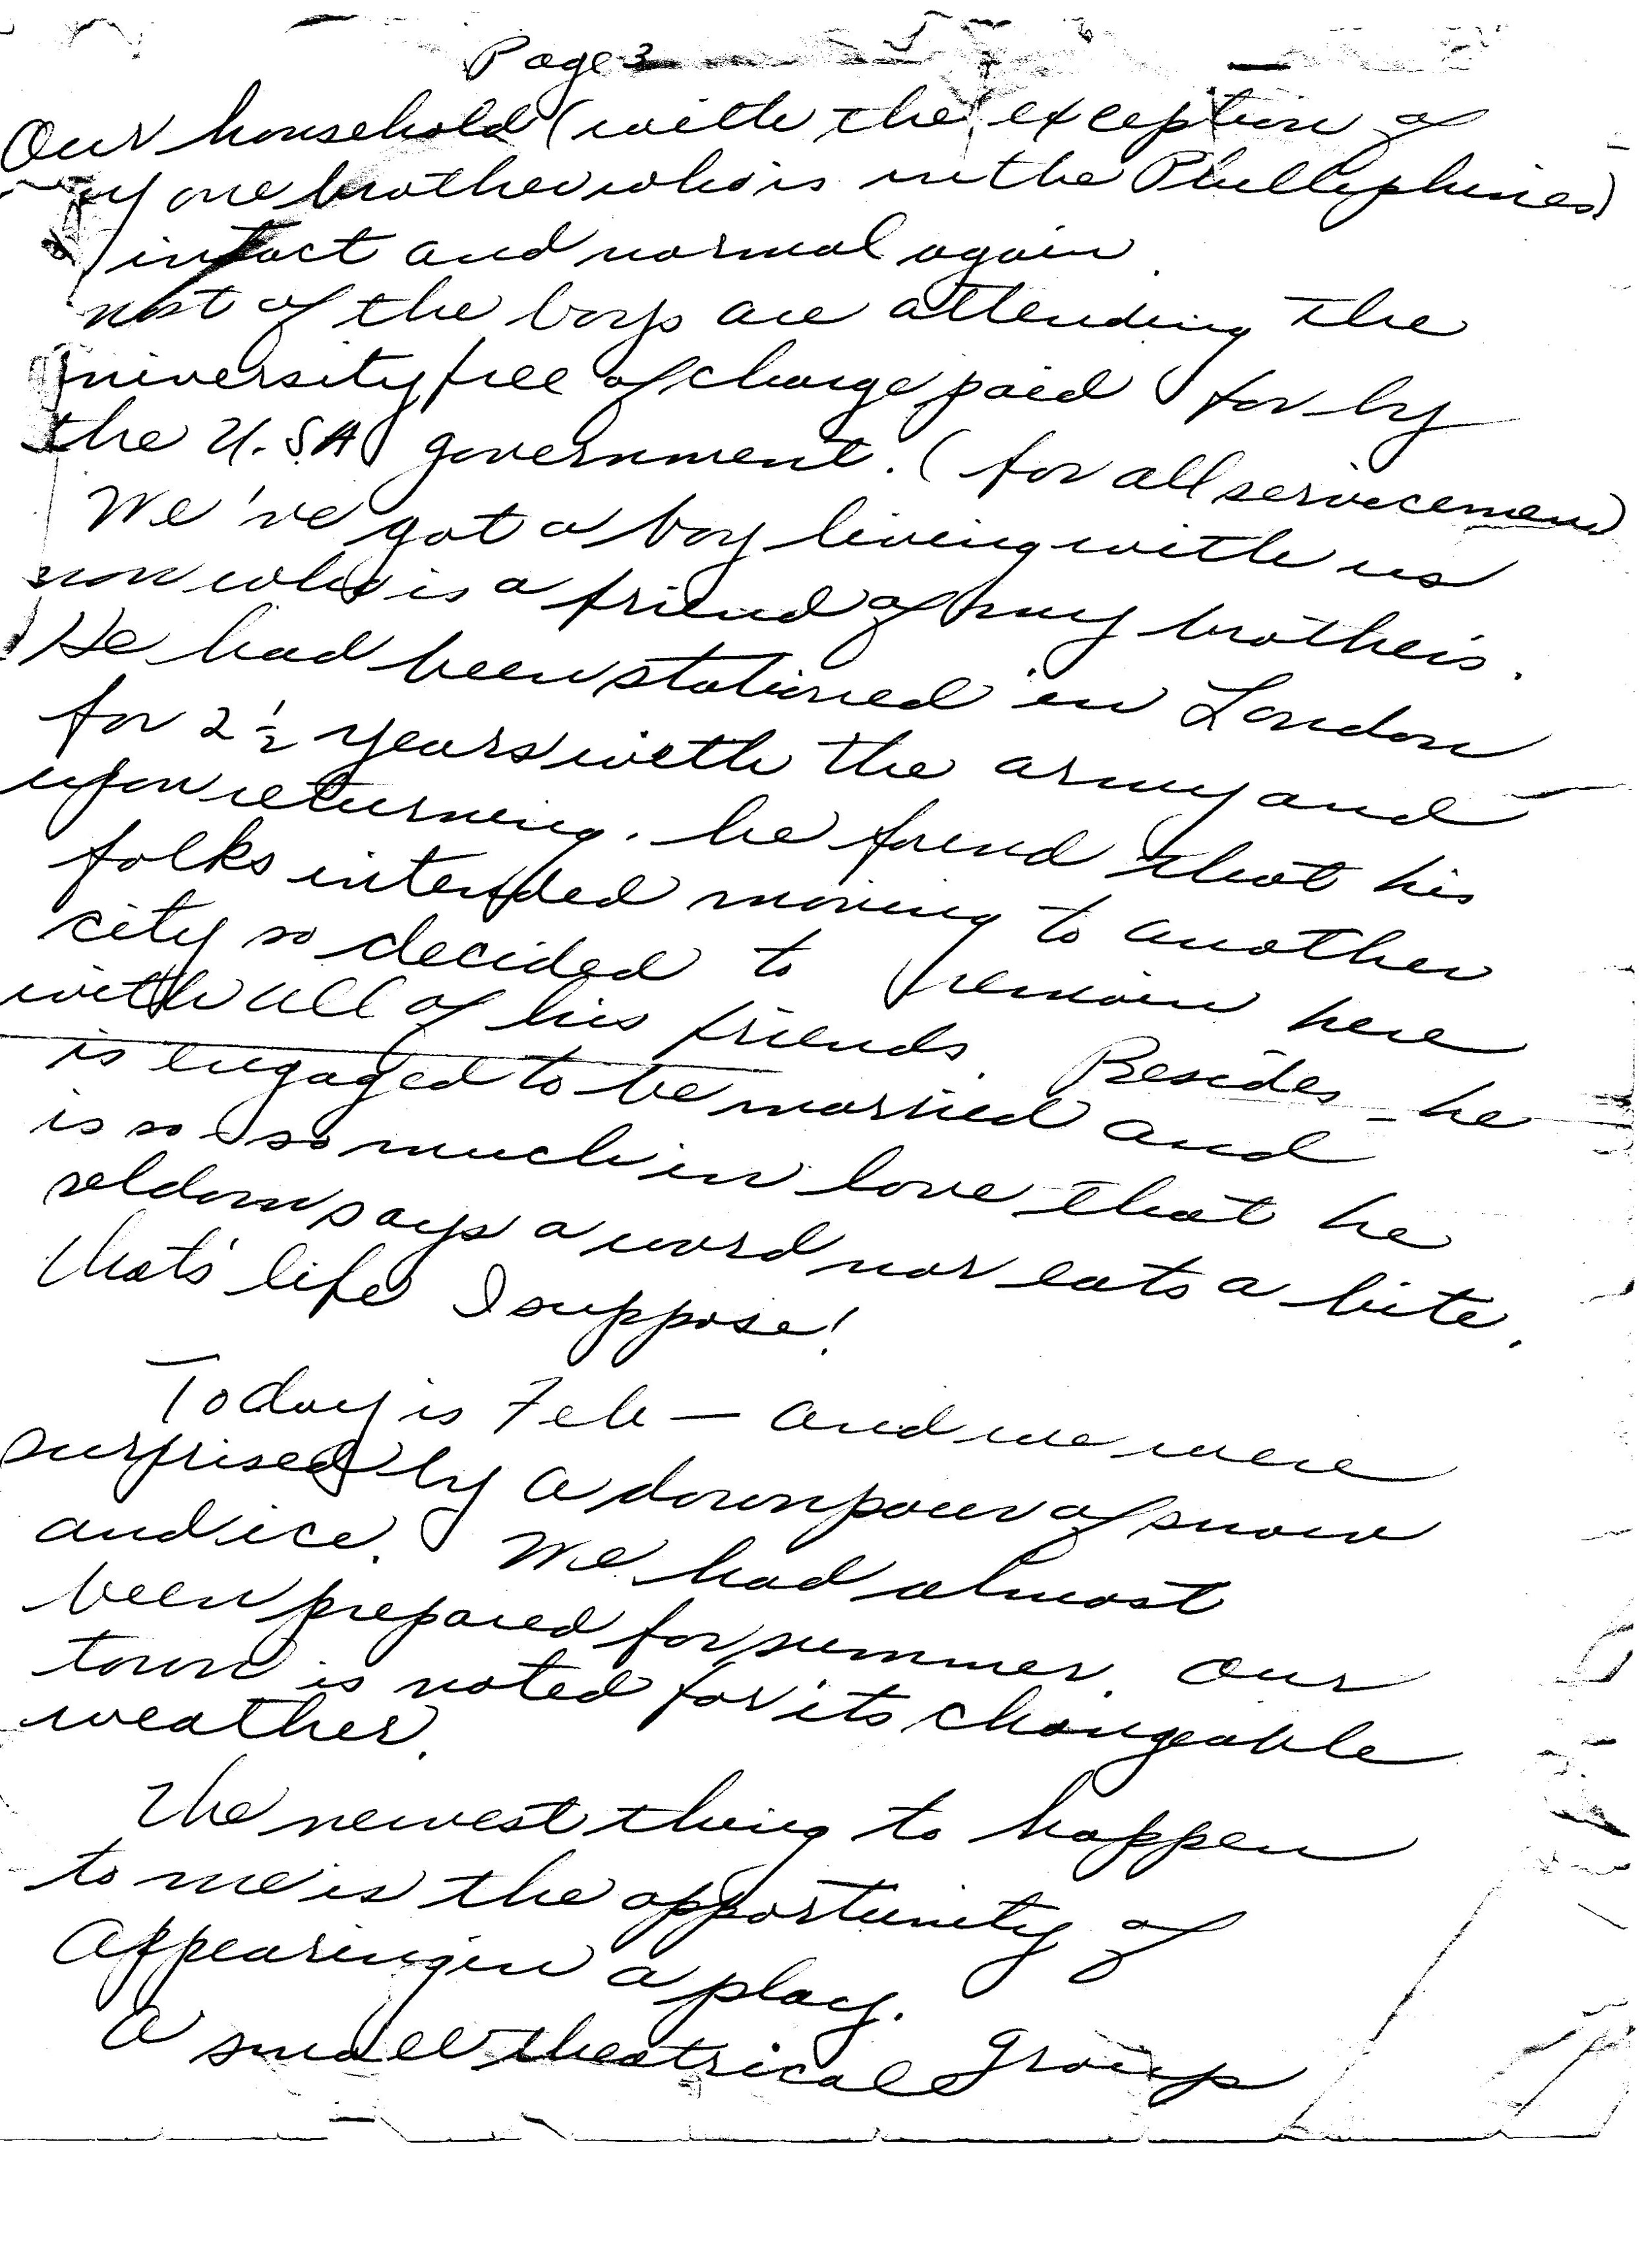 Page 3
Our household (with the exception of
my one brother who is in the Phillephines)
intact and normal again.
most of the boys are attending the
university free of charge paid for by
the U.S.A government. (for all servicemen)
We've got a boy living with us
now who is a friend of my brothers.
He had been stationed in London
for 2 1/2 years with the army and
upon returning. he found that his
folks intended moving to another
city so decided to remain here
with all of his friends. Besides - he
is engaged to be married and
is so - so much in love that he
seldom says a word nor eats a bite.
that's life I suppose!
Today is Feb — and we were
surprised by a downpour of snow
and ice. We had almost
been prepared for summer. Our
town is noted for its changeable
weather.
The newest thing to happen
to me is the opportunity of
appearing in a play.
A small theatrical group